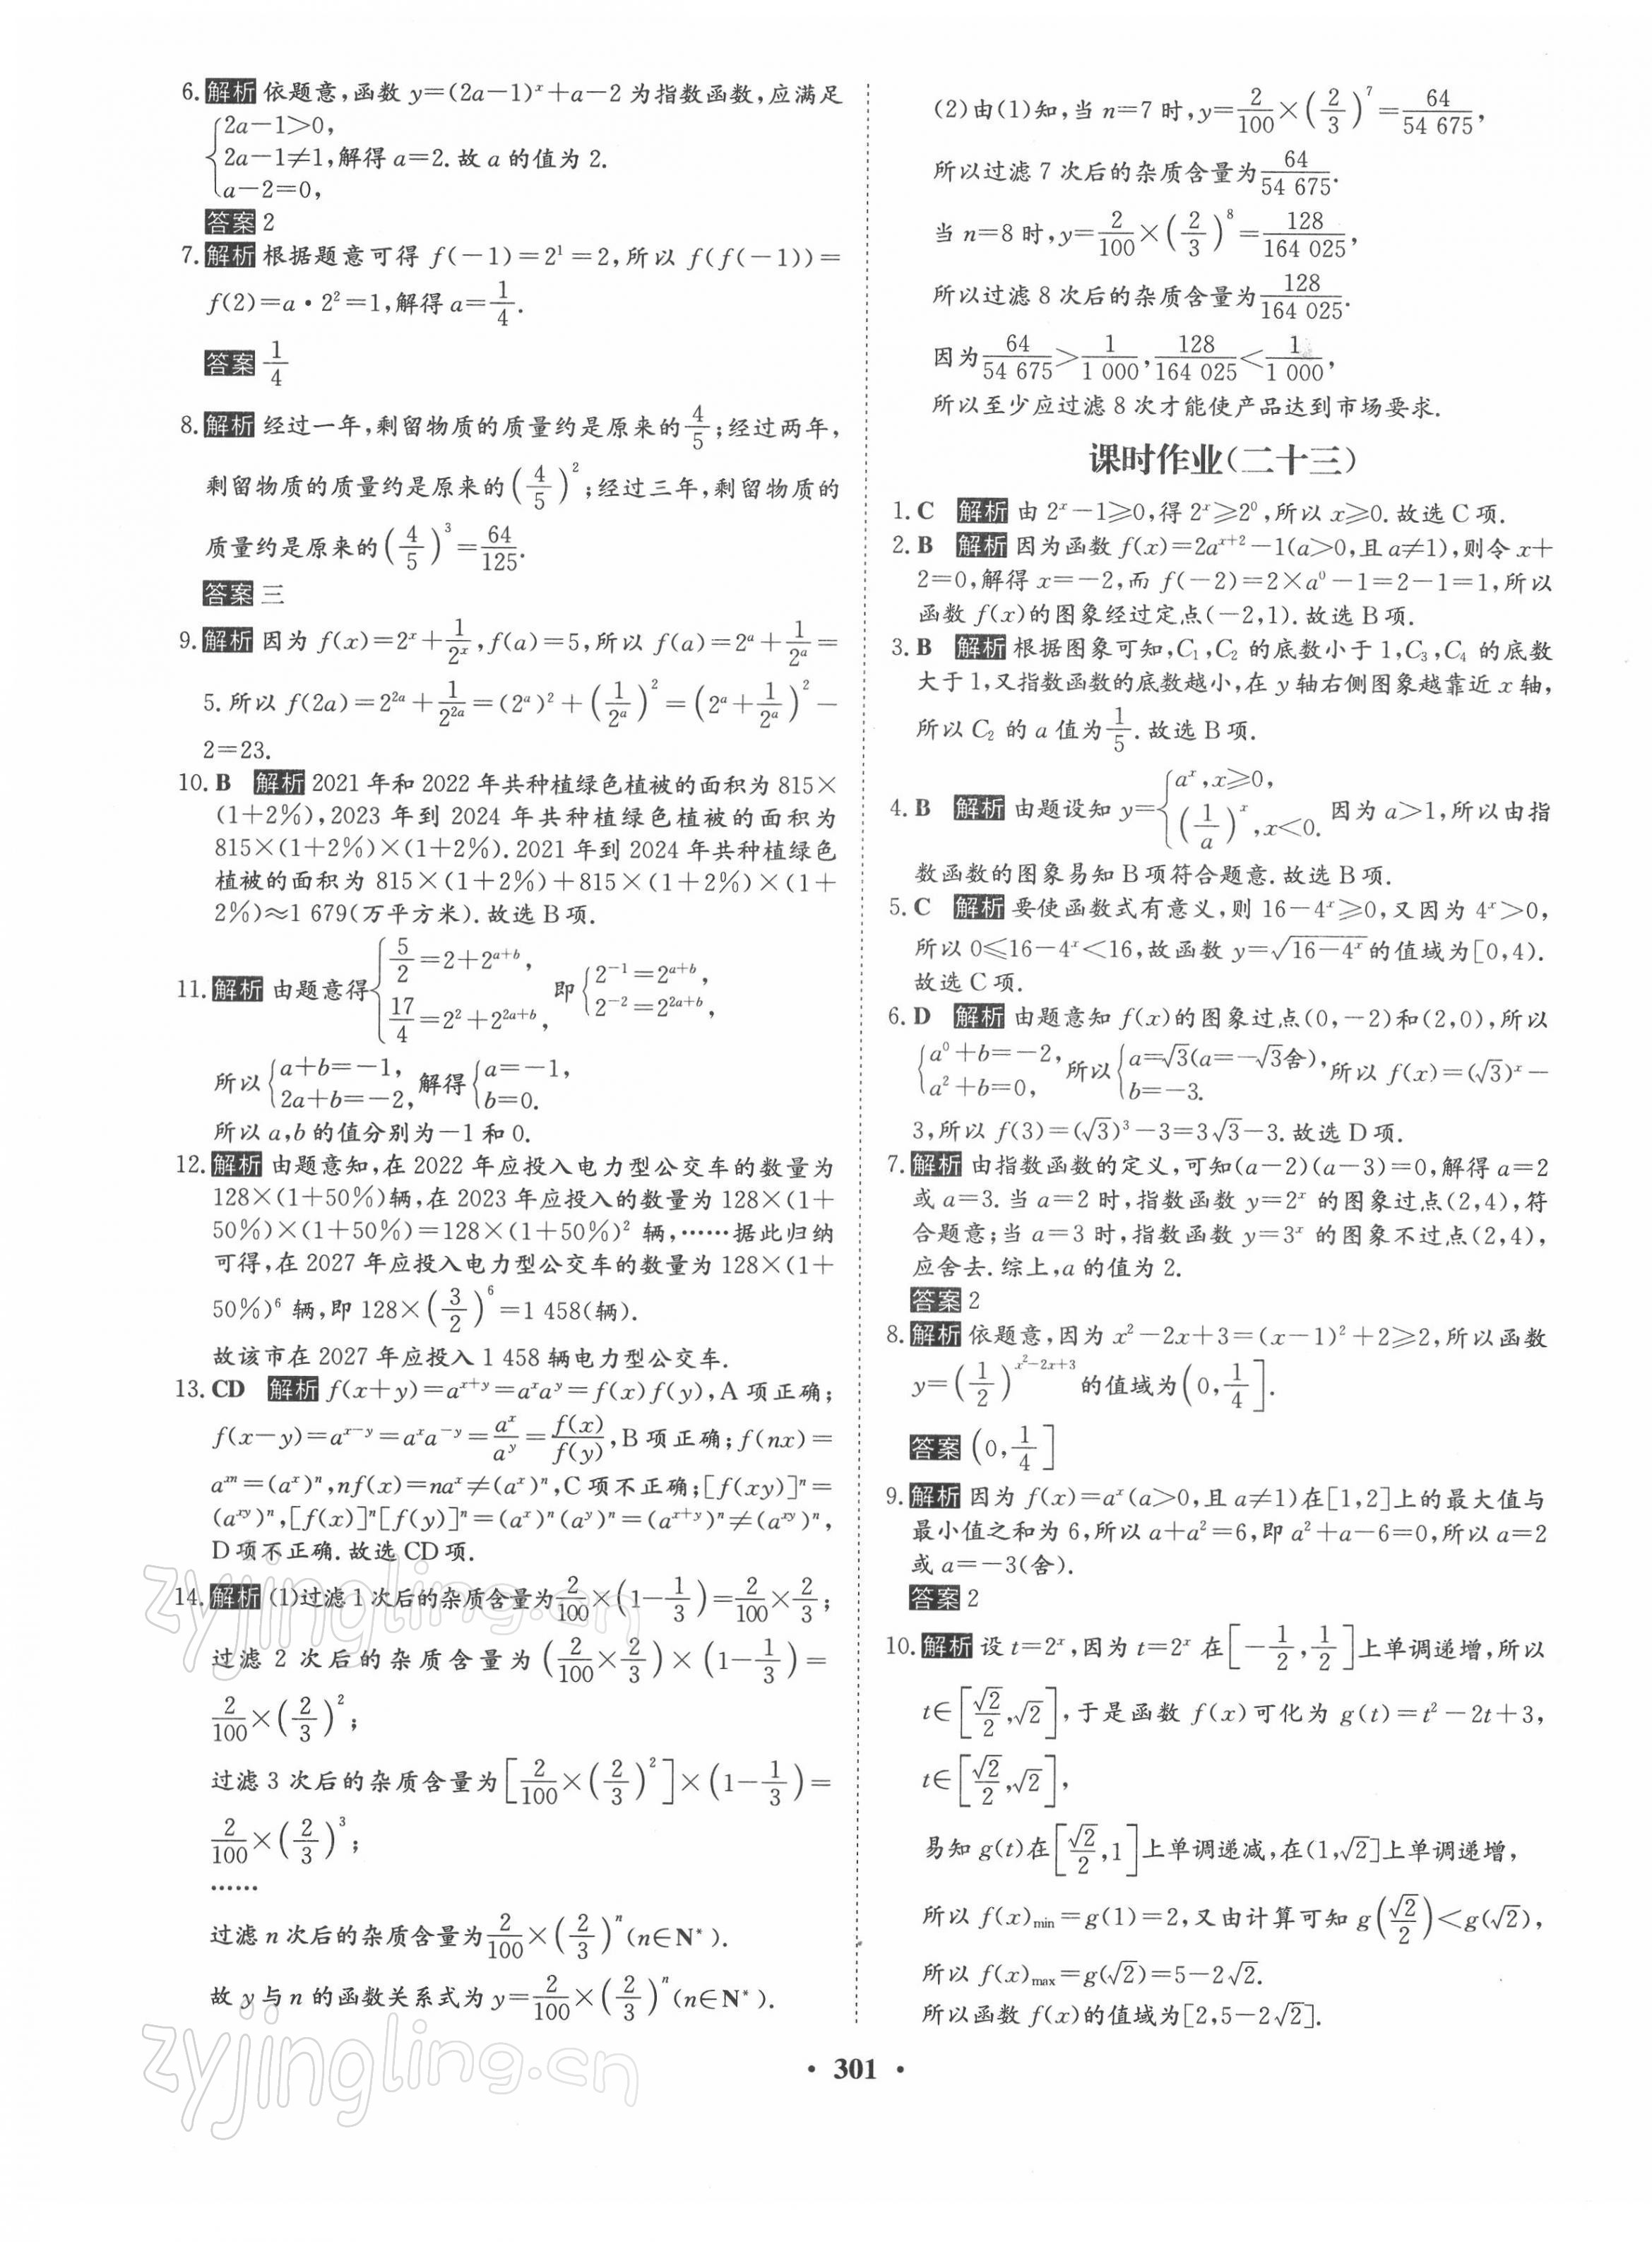 6.解析 依题意,函数 y=(2a−1)ˣ+a−2 为指数函数,应满足
{2a−1>0,
2a−1≠1,解得 a=2.故 a 的值为 2.
a−2=0,
答案 2
7.解析 根据题意可得 f(−1)=2¹=2,所以 f(f(−1))=
f(2)=a·2²=1,解得 a=1/4.
答案 1/4
8.解析 经过一年,剩留物质的质量约是原来的4/5;经过两年,
剩留物质的质量约是原来的(4/5)²;经过三年,剩留物质的
质量约是原来的(4/5)³=64/125.
答案 三
9.解析 因为 f(x)=2ˣ+1/2ˣ,f(a)=5,所以 f(a)=2ᵃ+1/2ᵃ=
5.所以 f(2a)=2²ᵃ+1/2²ᵃ=(2ᵃ)²+(1/2ᵃ)²=(2ᵃ+1/2ᵃ)²−
2=23.
10.B 解析 2021 年和 2022 年共种植绿色植被的面积为 815×
(1+2%),2023 年到 2024 年共种植绿色植被的面积为
815×(1+2%)×(1+2%).2021 年到 2024 年共种植绿色
植被的面积为 815×(1+2%)+815×(1+2%)×(1+
2%)≈1 679(万平方米).故选 B 项.
11.解析 由题意得{5/2=2+2^(a+b), 17/4=2²+2^(2a+b), 即{2⁻¹=2^(a+b), 2⁻²=2^(2a+b),
所以{a+b=−1, 2a+b=−2, 解得{a=−1, b=0.
所以 a,b 的值分别为−1 和 0.
12.解析 由题意知,在 2022 年应投入电力型公交车的数量为
128×(1+50%)辆,在 2023 年应投入的数量为 128×(1+
50%)×(1+50%)=128×(1+50%)² 辆,……据此归纳
可得,在 2027 年应投入电力型公交车的数量为 128×(1+
50%)⁶ 辆,即 128×(3/2)⁶=1 458(辆).
故该市在 2027 年应投入 1 458 辆电力型公交车.
13.CD 解析 f(x+y)=a^(x+y)=aˣaʸ=f(x)f(y),A 项正确;
f(x−y)=a^(x−y)=aˣa⁻ʸ=aˣ/aʸ=f(x)/f(y),B 项正确;f(nx)=
a^(nx)=(aˣ)ⁿ,nf(x)=naˣ≠(aˣ)ⁿ,C 项不正确;[f(xy)]ⁿ=
(a^(xy))ⁿ,[f(x)]ⁿ[f(y)]ⁿ=(aˣ)ⁿ(aʸ)ⁿ=(a^(x+y))ⁿ≠(a^(xy))ⁿ,
D 项不正确.故选 CD 项.
14.解析 (1)过滤 1 次后的杂质含量为2/100×(1−1/3)=2/100×2/3;
过滤 2 次后的杂质含量为(2/100×2/3)×(1−1/3)=
2/100×(2/3)²;
过滤 3 次后的杂质含量为[2/100×(2/3)²]×(1−1/3)=
2/100×(2/3)³;
……
过滤 n 次后的杂质含量为2/100×(2/3)ⁿ(n∈N*).
故 y 与 n 的函数关系式为 y=2/100×(2/3)ⁿ(n∈N*).
(2)由(1)知,当 n=7 时,y=2/100×(2/3)⁷=64/54 675,
所以过滤 7 次后的杂质含量为64/54 675.
当 n=8 时,y=2/100×(2/3)⁸=128/164 025,
所以过滤 8 次后的杂质含量为128/164 025.
因为64/54 675>1/1 000,128/164 025<1/1 000,
所以至少应过滤 8 次才能使产品达到市场要求.
课时作业(二十三)
1.C 解析 由 2ˣ−1≥0,得 2ˣ≥2⁰,所以 x≥0.故选 C 项.
2.B 解析 因为函数 f(x)=2a^(x+2)−1(a>0,且 a≠1),则令 x+
2=0,解得 x=−2,而 f(−2)=2×a⁰−1=2−1=1,所以
函数 f(x)的图象经过定点(−2,1).故选 B 项.
3.B 解析 根据图象可知,C₁,C₂ 的底数小于 1,C₃,C₄ 的底数
大于 1,又指数函数的底数越小,在 y 轴右侧图象越靠近 x 轴,
所以 C₂ 的 a 值为1/5.故选 B 项.
4.B 解析 由题设知 y={aˣ,x≥0, (1/a)ˣ,x<0. 因为 a>1,所以由指
数函数的图象易知 B 项符合题意.故选 B 项.
5.C 解析 要使函数式有意义,则 16−4ˣ≥0,又因为 4ˣ>0,
所以 0≤16−4ˣ<16,故函数 y=√(16−4ˣ)的值域为[0,4).
故选 C 项.
6.D 解析 由题意知 f(x)的图象过点(0,−2)和(2,0),所以
{a⁰+b=−2, a²+b=0, 所以{a=√3(a=−√3舍), b=−3. 所以 f(x)=(√3)ˣ−
3,所以 f(3)=(√3)³−3=3√3−3.故选 D 项.
7.解析 由指数函数的定义,可知(a−2)(a−3)=0,解得 a=2
或 a=3.当 a=2 时,指数函数 y=2ˣ 的图象过点(2,4),符
合题意;当 a=3 时,指数函数 y=3ˣ 的图象不过点(2,4),
应舍去.综上,a 的值为 2.
答案 2
8.解析 依题意,因为 x²−2x+3=(x−1)²+2≥2,所以函数
y=(1/2)^(x²−2x+3)的值域为(0,1/4].
答案 (0,1/4]
9.解析 因为 f(x)=aˣ(a>0,且 a≠1)在[1,2]上的最大值与
最小值之和为 6,所以 a+a²=6,即 a²+a−6=0,所以 a=2
或 a=−3(舍).
答案 2
10.解析 设 t=2ˣ,因为 t=2ˣ 在[−1/2,1/2]上单调递增,所以
t∈[√2/2,√2],于是函数 f(x)可化为 g(t)=t²−2t+3,
t∈[√2/2,√2],
易知 g(t)在[√2/2,1]上单调递减,在(1,√2]上单调递增,
所以 f(x)min=g(1)=2,又由计算可知 g(√2/2)<g(√2),
所以 f(x)max=g(√2)=5−2√2.
所以函数 f(x)的值域为[2,5−2√2].
· 301 ·
zyjingling.cn
zyjingling.cn